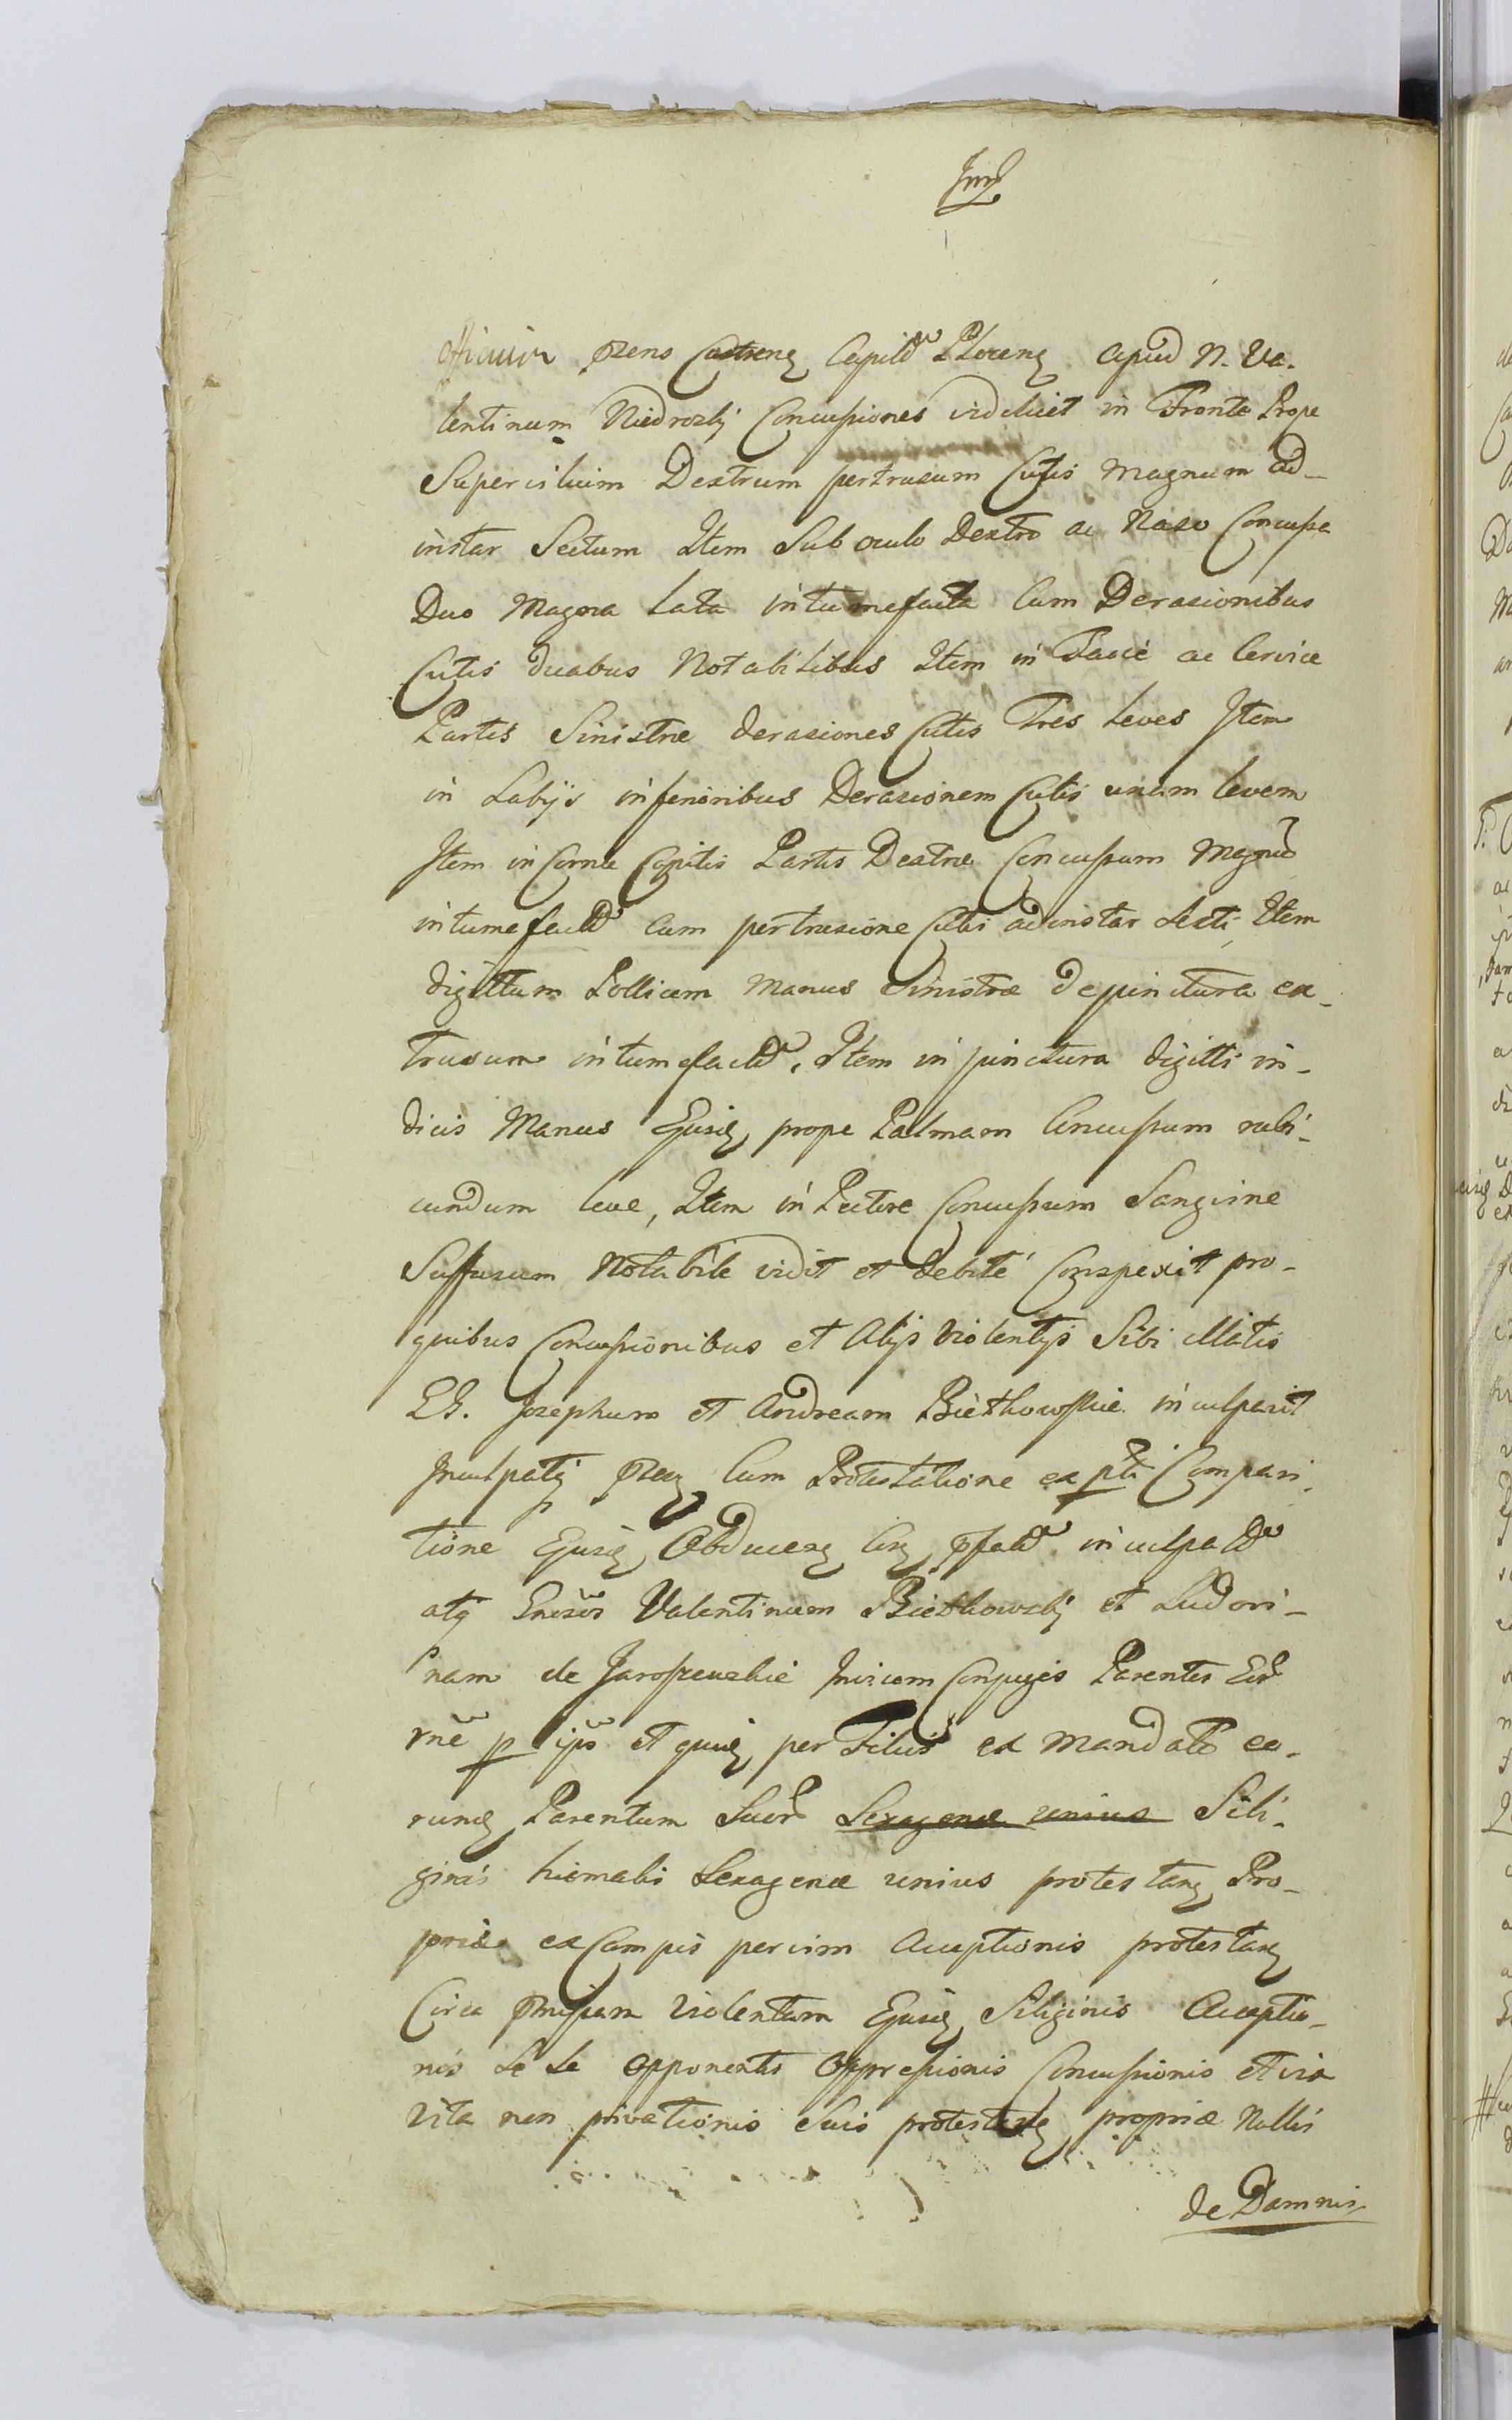 officium pzens Castrens Capitle Plocens apud N. Va-
lentinum Niedrozkj Concussiones videlicet in Fronte Prope
Supercilium Dextrum pertrusum Cutis magnum ad-
instar Sectum Item Sub oculo Dextro ac Naso Concussa
Duo Magna Lata intumefacta Cum Derasionibus
Cutis duabus Notabilibus Item in Facie ac Cervice
Partis Sinistrae derasiones Cutis Tres leves Item
in Labijs inferioribus Derasionem Cutis unam levem
Item in Cornu Capitis Partis Dextrae Concussum Magnu
intumefactu Cum pertrusione Cutis adinstar Secti Item
digittum Pollicem Manus Sinistrae de pinctura ex-
trusum intumefactu, Item in pinctura digitti in-
dicis Manus Ejusq prope Palmam Concussum rubi-
cundum leve, Item in Pectore Concussum Sangvine
Suffusum Notabile vidit et debite Conspexit pro-
quibus Concussionibus et Alijs Violentijs Sibi illatis
EG. Josephum et Andream Bieżkowskie inculpavit
Inculpatq pzen Cum Protestatione ex pti Compari-
tione Ejusq Abducen Con pfato inculpato
atq Gnosos Valentinum Bieżkowskj et Ludovi-
nam de Jaroszewskie Invicem Conjuges Parentes Eor
rne p ipos et quidq per Filios ex Mandato eo-
rundq Parentum Suor Sexagenae unius Sili-
ginis hiemalis Sexagenae unius protestan Pro-
priae ex Campis per vim Acceptionis protestan
Circa pmissam Violentam Ejusq Siliginis Acceptio-
nis Se Se opponentis Oppressionis Concussionis et vix
vita non privationis Suis protestan propriae Nullis
de Damnis